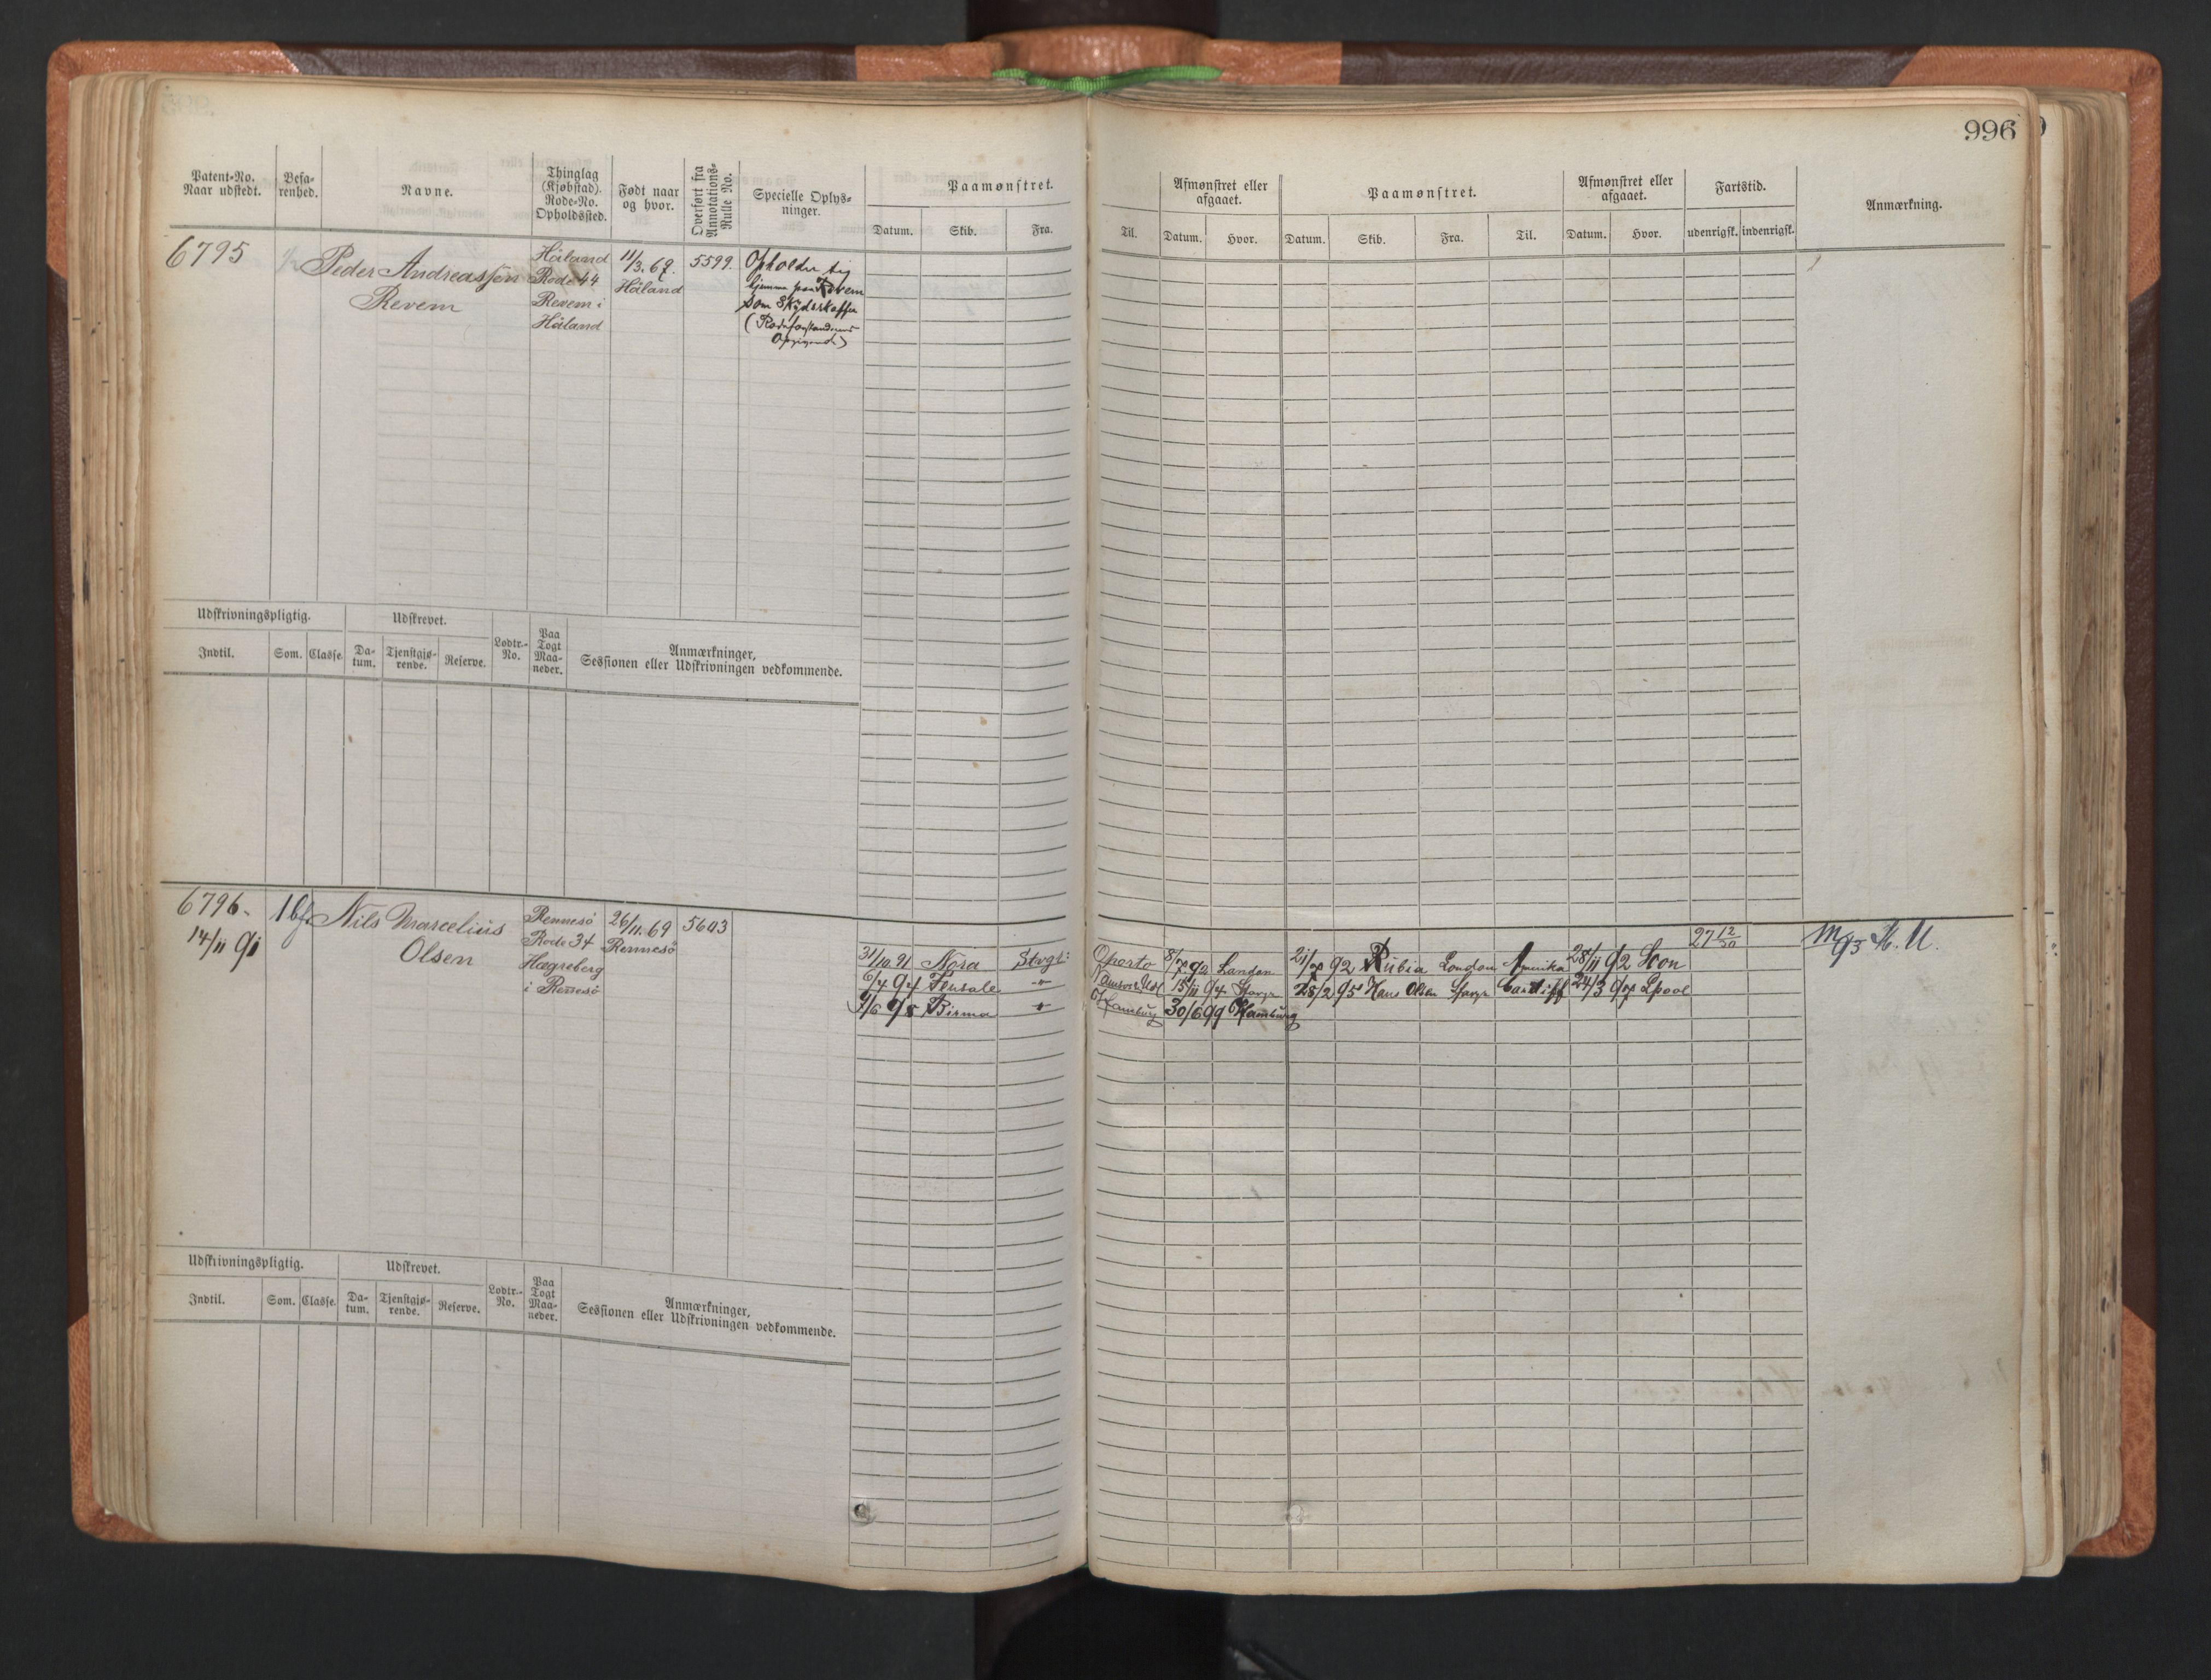 996
Patent-No. Naar udstedt.
Befa-renhed.
Navne.
Thinglag (Kjøbstad). Rode-No. Opholdssted.
Født naar og hvor.
Overført fra Annotations-Rulle No.
Specielle Oplys-ninger.
Paamønstret.
Datum. Skib. Fra.
Til.
Afmønstret eller afgaaet.
Datum. Hvor.
Paamønstret.
Datum. Skib. Fra. Til.
Afmønstret eller afgaaet.
Datum. Hvor.
Fartstid.
udenrigsk. indenrigsk.
Anmærkning.
6795
Peder Andreassen
Revem
Håland
Rode 44
Revem i
Håland
11/3. 67.
Håland
5599.
Opholder sig
hjemme paa Revem
som Skydsskaffer
(Rodeforstanderens
Opgivende)
Udskrivningspligtig.
Udskrevet.
Indtil. Som. Classe.
Da-tum. Tjenstgjø-rende. Reserve.
Lodtr.-No.
Paa Togt Maa-neder.
Anmærkninger,
Sessionen eller Udskrivningen vedkommende.
6796.
14/11 91
Nils Marcelius
Olsen
Rennesö
Rode 34
Hægreberg
i Rennesö
26/11. 69
Rennesö
5643
31/10 91 Nora Stvgr: Oporto 8/7 92 London 21/7 92 Rubia London Amerika 28/11 92 Hon 27 12/30
6/4 94 15/11 94 Stavgr 25/2 95 Hans Olsen Stavgr Cardiff 24/3 97 Lpool
9/6 98 Birma Hamburg 30/6 99 Hamburg
Udskrivningspligtig.
Udskrevet.
Indtil. Som. Classe.
Da-tum. Tjenstgjø-rende. Reserve.
Lodtr.-No.
Paa Togt Maa-neder.
Anmærkninger,
Sessionen eller Udskrivningen vedkommende.